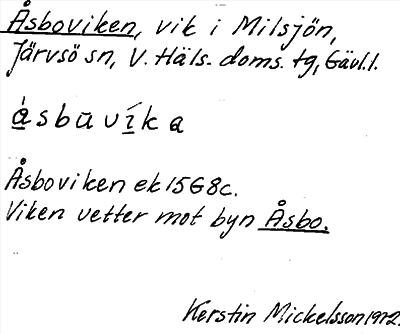 Åsboviken, vik i Milsjön,
Järvsö sn, V. Häls. doms. tg, Gävl. l.
åsbuvíka
Åsboviken ek 15G8c.
Viken vetter mot byn Åsbo.
Kerstin Mickelsson 1972.